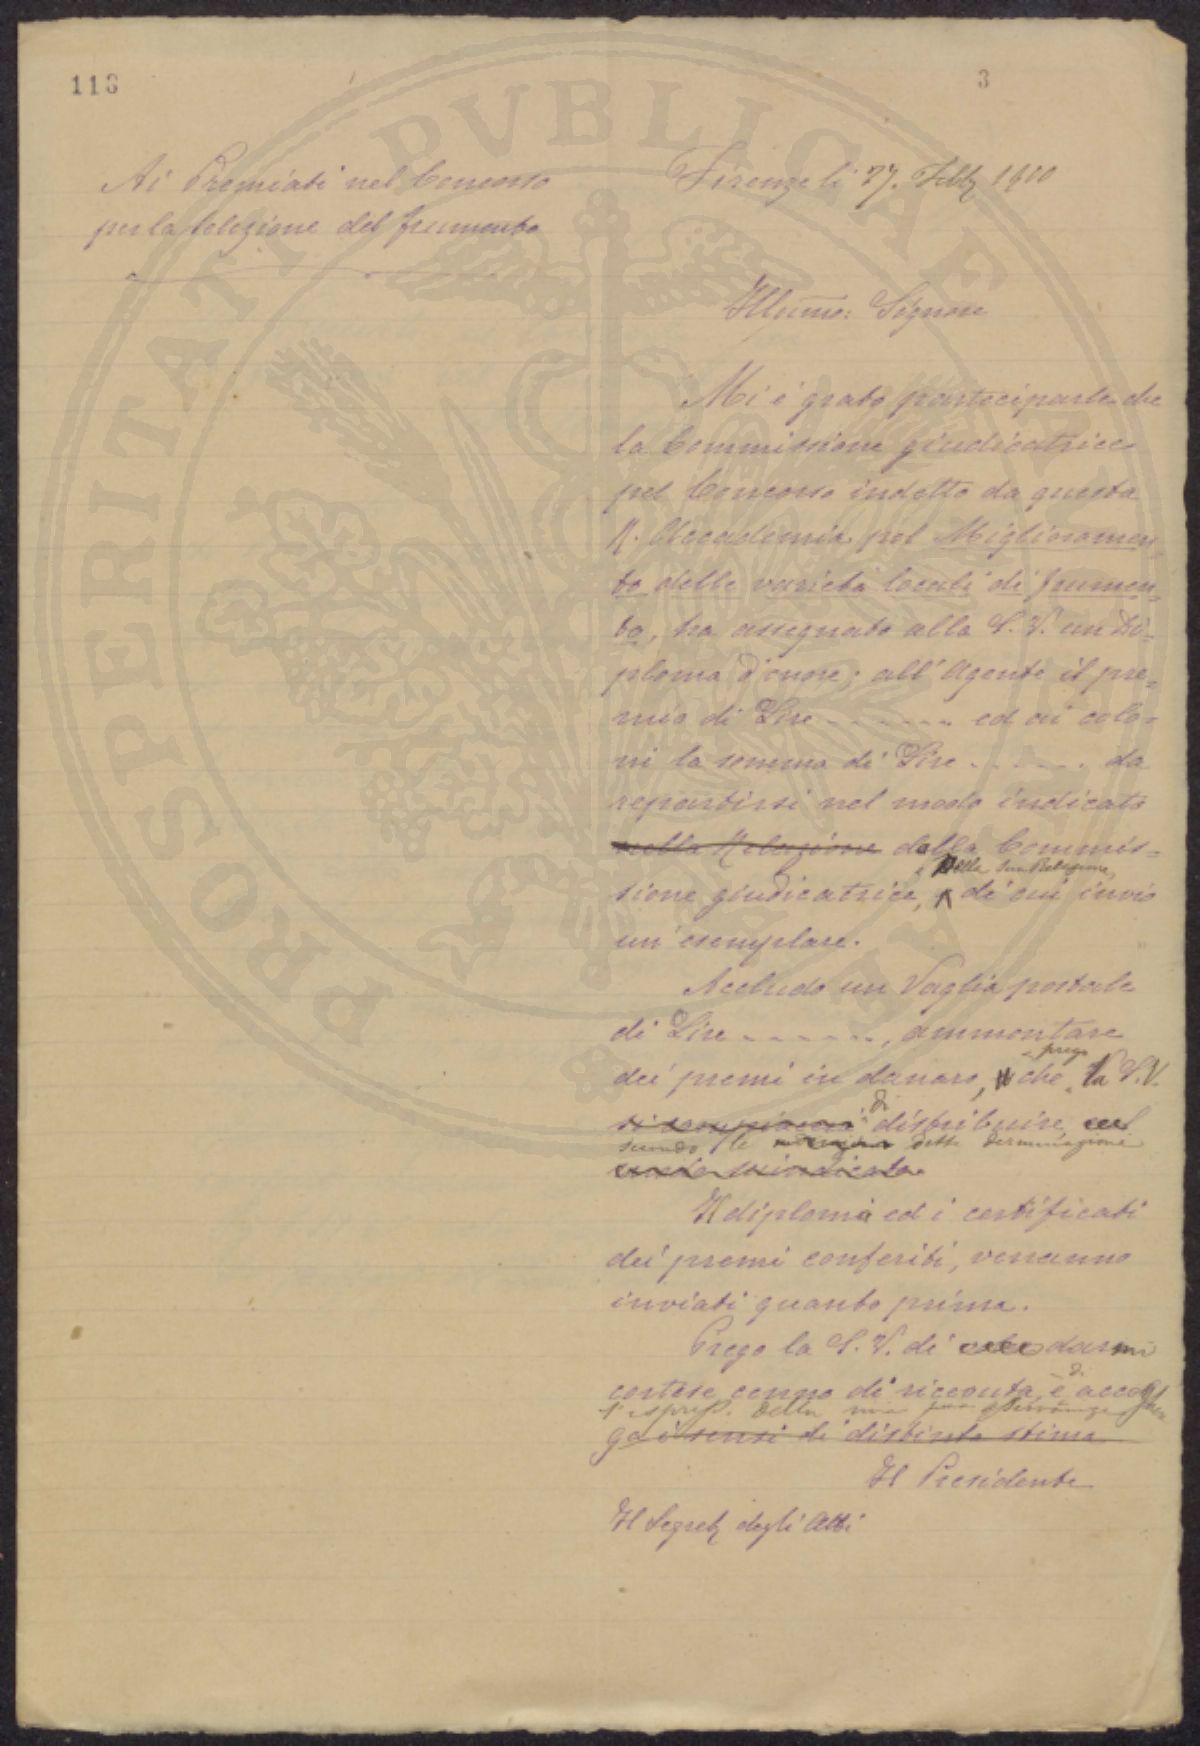 113
3
Ai Premiati nel Concorso
per la selezione del frumento
Firenze li 27. Febb 1900
Illumo: Signore
Mi è grato partecipare che
la Commissione giudicatrice
pel Concorso indetto da questa
R. Accademia pel Miglioramen-
to delle varietà locali di frumen-
to, ha assegnato alla S. V. un Di-
ploma d'onore; all'Agente il pre-
mio di Lire ------- ed ai colo-
ni la somma di Lire ------ da
repartirsi nel modo indicato
nella Relazione dalla Commis-
nella sua Relazione,
sione giudicatrice, di cui invio
un'esemplare.
Accludo un Vaglia postale
di Lire ------, ammontare
prego
dei premi in danaro, che la S.V.
di
si compiacerà distribuire
secondo le dette
Il diploma ed i certificati
dei premi conferiti, verranno
inviati quanto prima.
Prego la S. V. di darmi
di
cortese cenno di ricevuta, e accoglie
l'espress. della mia osservanza
ga i sensi di distinta stima
Il Presidente
Il Segret degli Atti
PROSPERITATI PVBLICAE